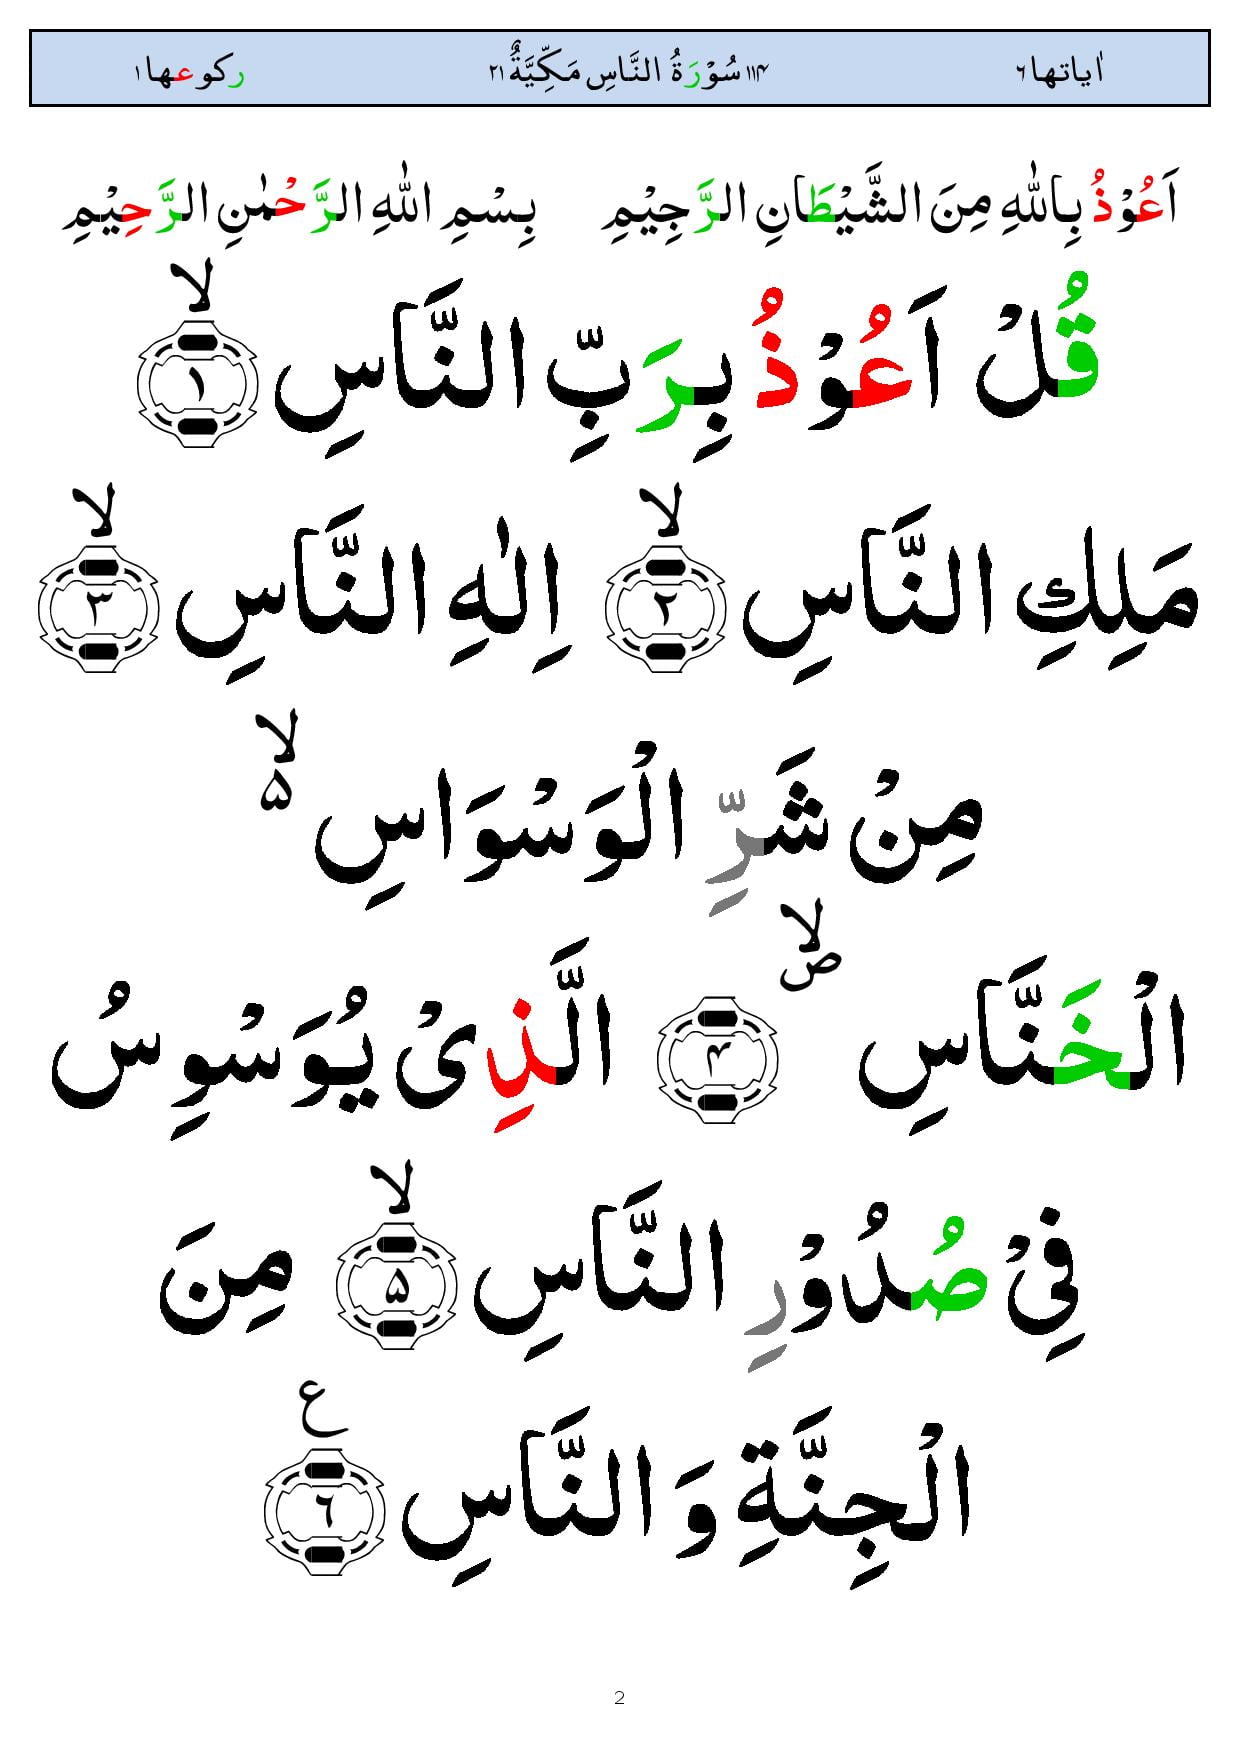 اٰیاتها ٦ ١١۴ سُوْرَةُ النَّاسِ مَكِّيَّةٌ ٢١ ركوعها ١
اَعُوْذُ بِاللّٰهِ مِنَ الشَّيْطَانِ الرَّجِيْمِ بِسْمِ اللّٰهِ الرَّحْمٰنِ الرَّحِيْمِ
قُلْ اَعُوْذُ بِرَبِّ النَّاسِ ۙ ١
مَلِكِ النَّاسِ ۙ ٢ اِلٰهِ النَّاسِ ۙ ٣
مِنْ شَرِّ الْوَسْوَاسِ ۙ۵
الْخَنَّاسِ ۙص ۴ الَّذِیْ يُوَسْوِسُ
فِیْ صُدُوْرِ النَّاسِ ۙ ۵ مِنَ
الْجِنَّةِ وَ النَّاسِ ع ٦
2